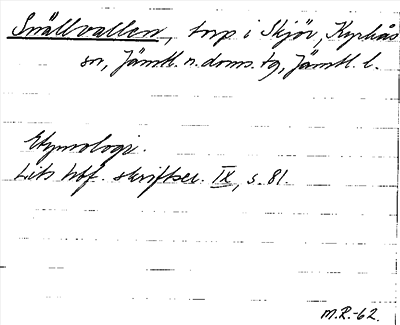 Snällvallen, torp i Skjör, Kyrkås
sn, Jämtl. n. doms. tg, Jämtl. l.
Etymologi.
Lits hbf. skriftser. IX, s. 81.
M.R.-62.